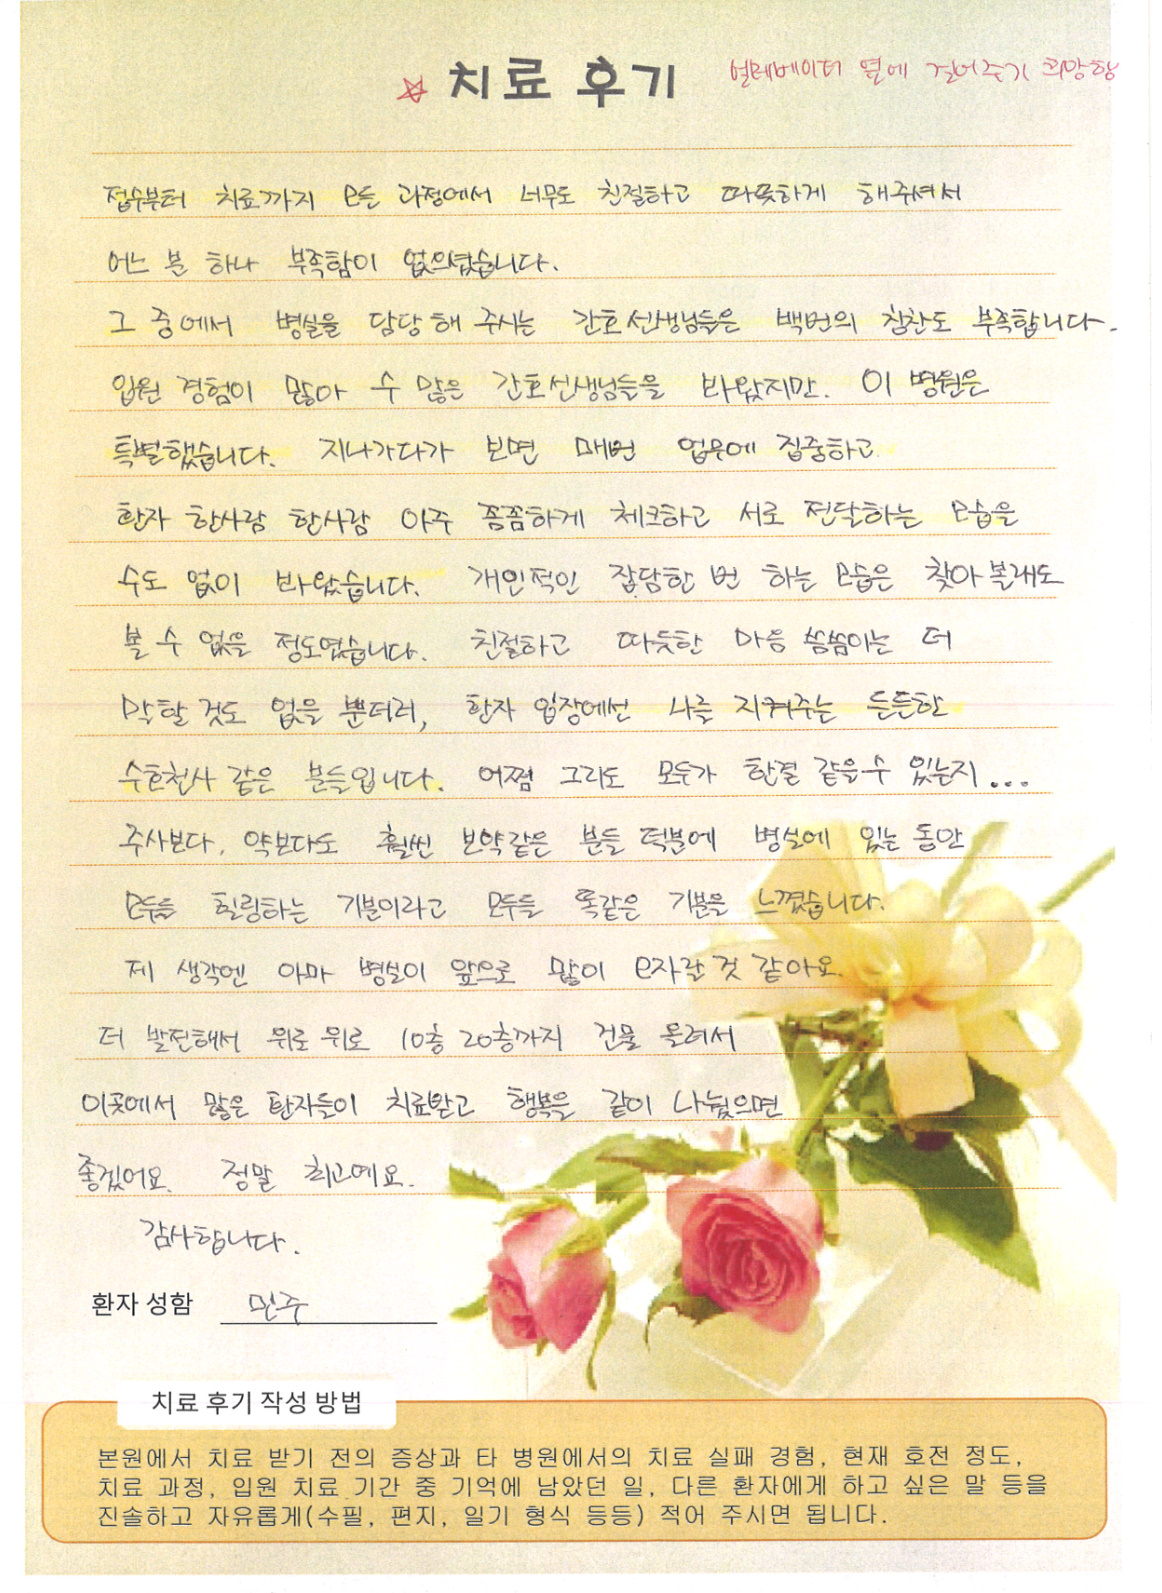 ☆ 치료 후기 엘레베이터 옆에 걸어주기 희망함
접수부터 치료까지 모든 과정에서 너무도 친절하고 따뜻하게 해주셔서
어느 분 하나 부족함이 없으셨습니다.
그 중에서 병실을 담당해 주시는 간호선생님들은 백번의 칭찬도 부족합니다.
입원 경험이 많아 수 많은 간호선생님들을 봐왔지만. 이 병원은
특별했습니다. 지나가다가 보면 매번 업무에 집중하고
환자 한사람 한사람 아주 꼼꼼하게 체크하고 서로 전달하는 모습을
수도 없이 봐왔습니다. 개인적인 잡담한번 하는 모습은 찾아볼래도
볼 수 없을 정도였습니다. 친절하고 따듯한 마음 씀씀이는 더
말할 것도 없을 뿐더러, 환자 입장에선 나를 지켜주는 든든한
수호천사 같은 분들입니다. 어쩜 그리도 모두가 한결 같을수 있는지...
주사보다. 약보다도 훨씬 보약같은 분들 덕분에 병실에 있는 동안
모두들 힐링하는 기분이라고 모두들 똑같은 기분을 느꼈습니다.
제 생각엔 아마 병실이 앞으로 많이 모자랄 것 같아요.
더 발전해서 위로 위로 10층 20층까지 건물 올려서
이곳에서 많은 환자들이 치료받고 행복을 같이 나눴으면
좋겠어요. 정말 최고예요.
감사합니다.
환자 성함 민주
치료 후기 작성 방법
본원에서 치료 받기 전의 증상과 타 병원에서의 치료 실패 경험, 현재 호전 정도,
치료 과정, 입원 치료 기간 중 기억에 남았던 일, 다른 환자에게 하고 싶은 말 등을
진솔하고 자유롭게(수필, 편지, 일기 형식 등등) 적어 주시면 됩니다.